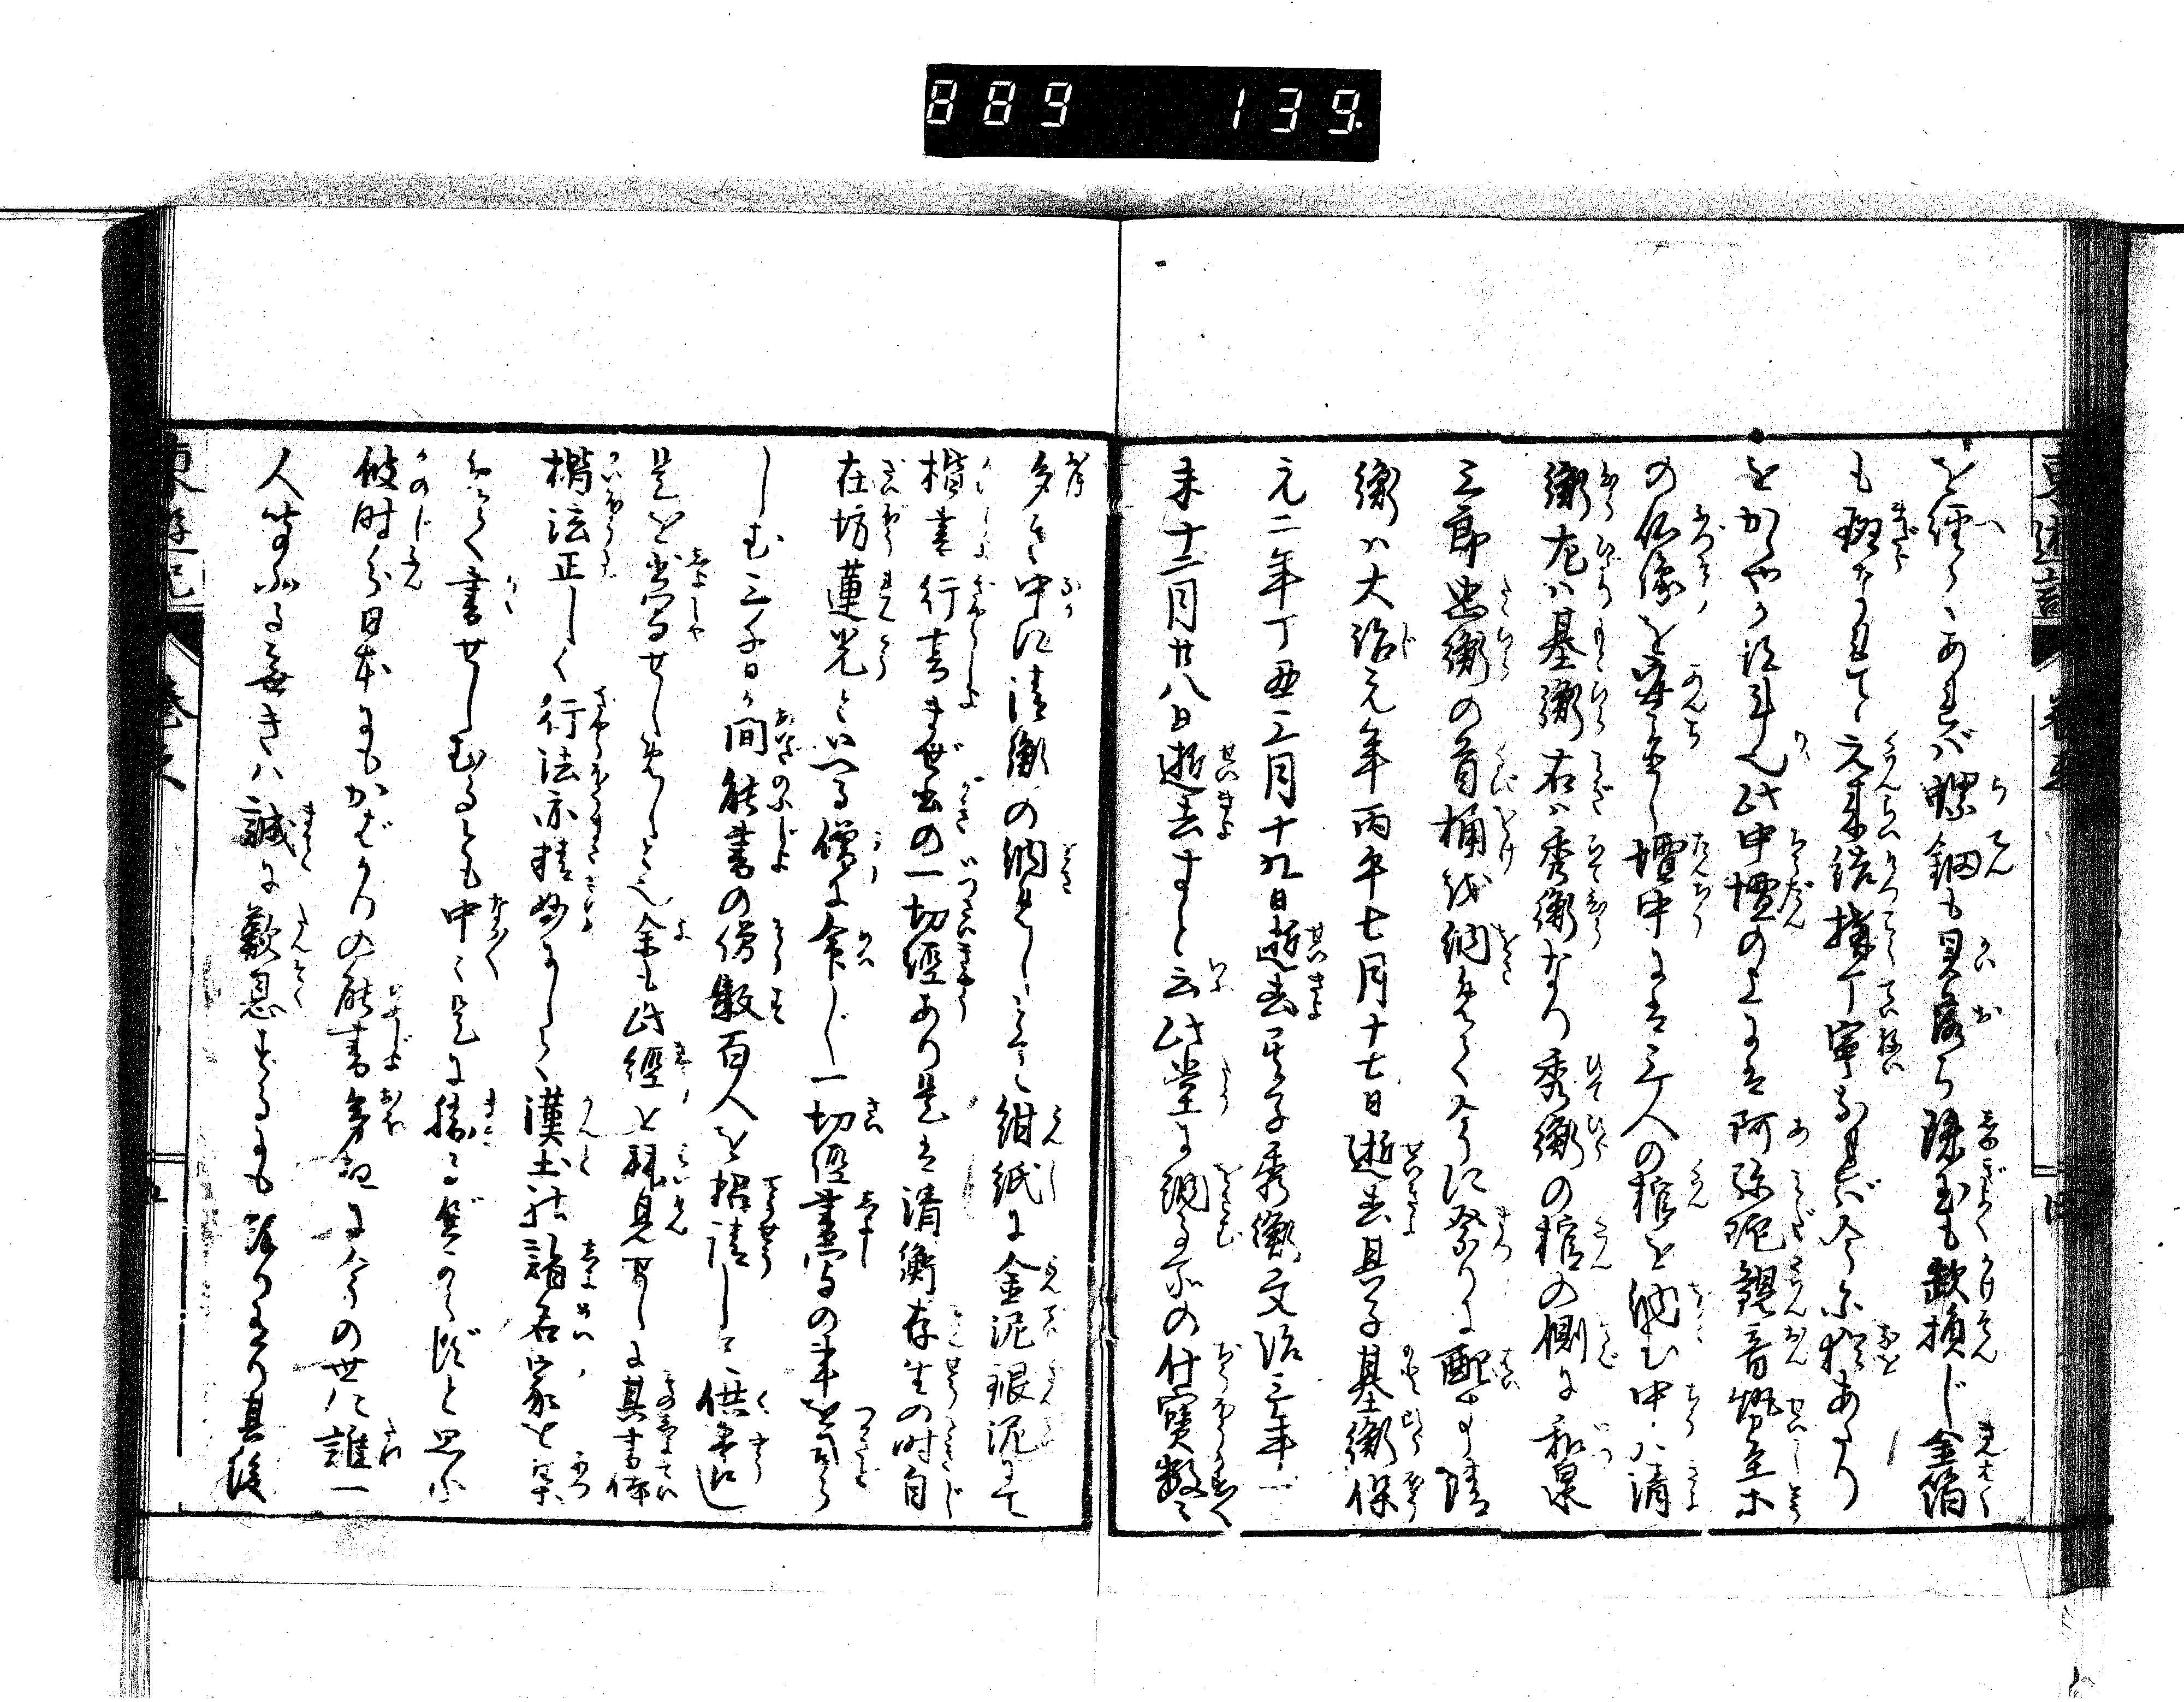 889 139
を經しことあれバ螺鈿も貝落ち珠玉も缺損じ金箔
も斑なれども元来結構丁寧なれバ今に猶あたり
をかゝやかせり此中壇の上にハ阿弥陀観音勢至等
の佛像を安置し壇中にハ三人の棺を納む中ハ清
衡左ハ基衡右ハ秀衡なり秀衡の棺の側に和泉
三郎忠衡の首桶を納めて今に祭りに配す清
衡ハ大治元年丙午七月十七日逝去其子基衡保
元二年丁丑三月十九日逝去其子秀衡文治三年丁
未十二月廿八日逝去すと云此堂に納る所の什寳数々
多き中に清衡の納めしとて紺紙に金泥銀泥にて
楷書行書まぜ書の一切經あり是ハ清衡存生の時自
在坊蓮光といへる僧に命じ一切經書写の事を司ら
しむ三千日が間能書の僧数百人を招請して供養し
是を書写せしめしと也余も此經を拝見せしに其書体
楷法正しく行法亦精妙にして漢土の諸名家を集
めて書せしむるとも中々是に勝るべからずと思ふ
彼時分日本にもかばかりの能書多きに今の世に誰一
人等ふる無きハ誠に歎息するにも餘りあり其後